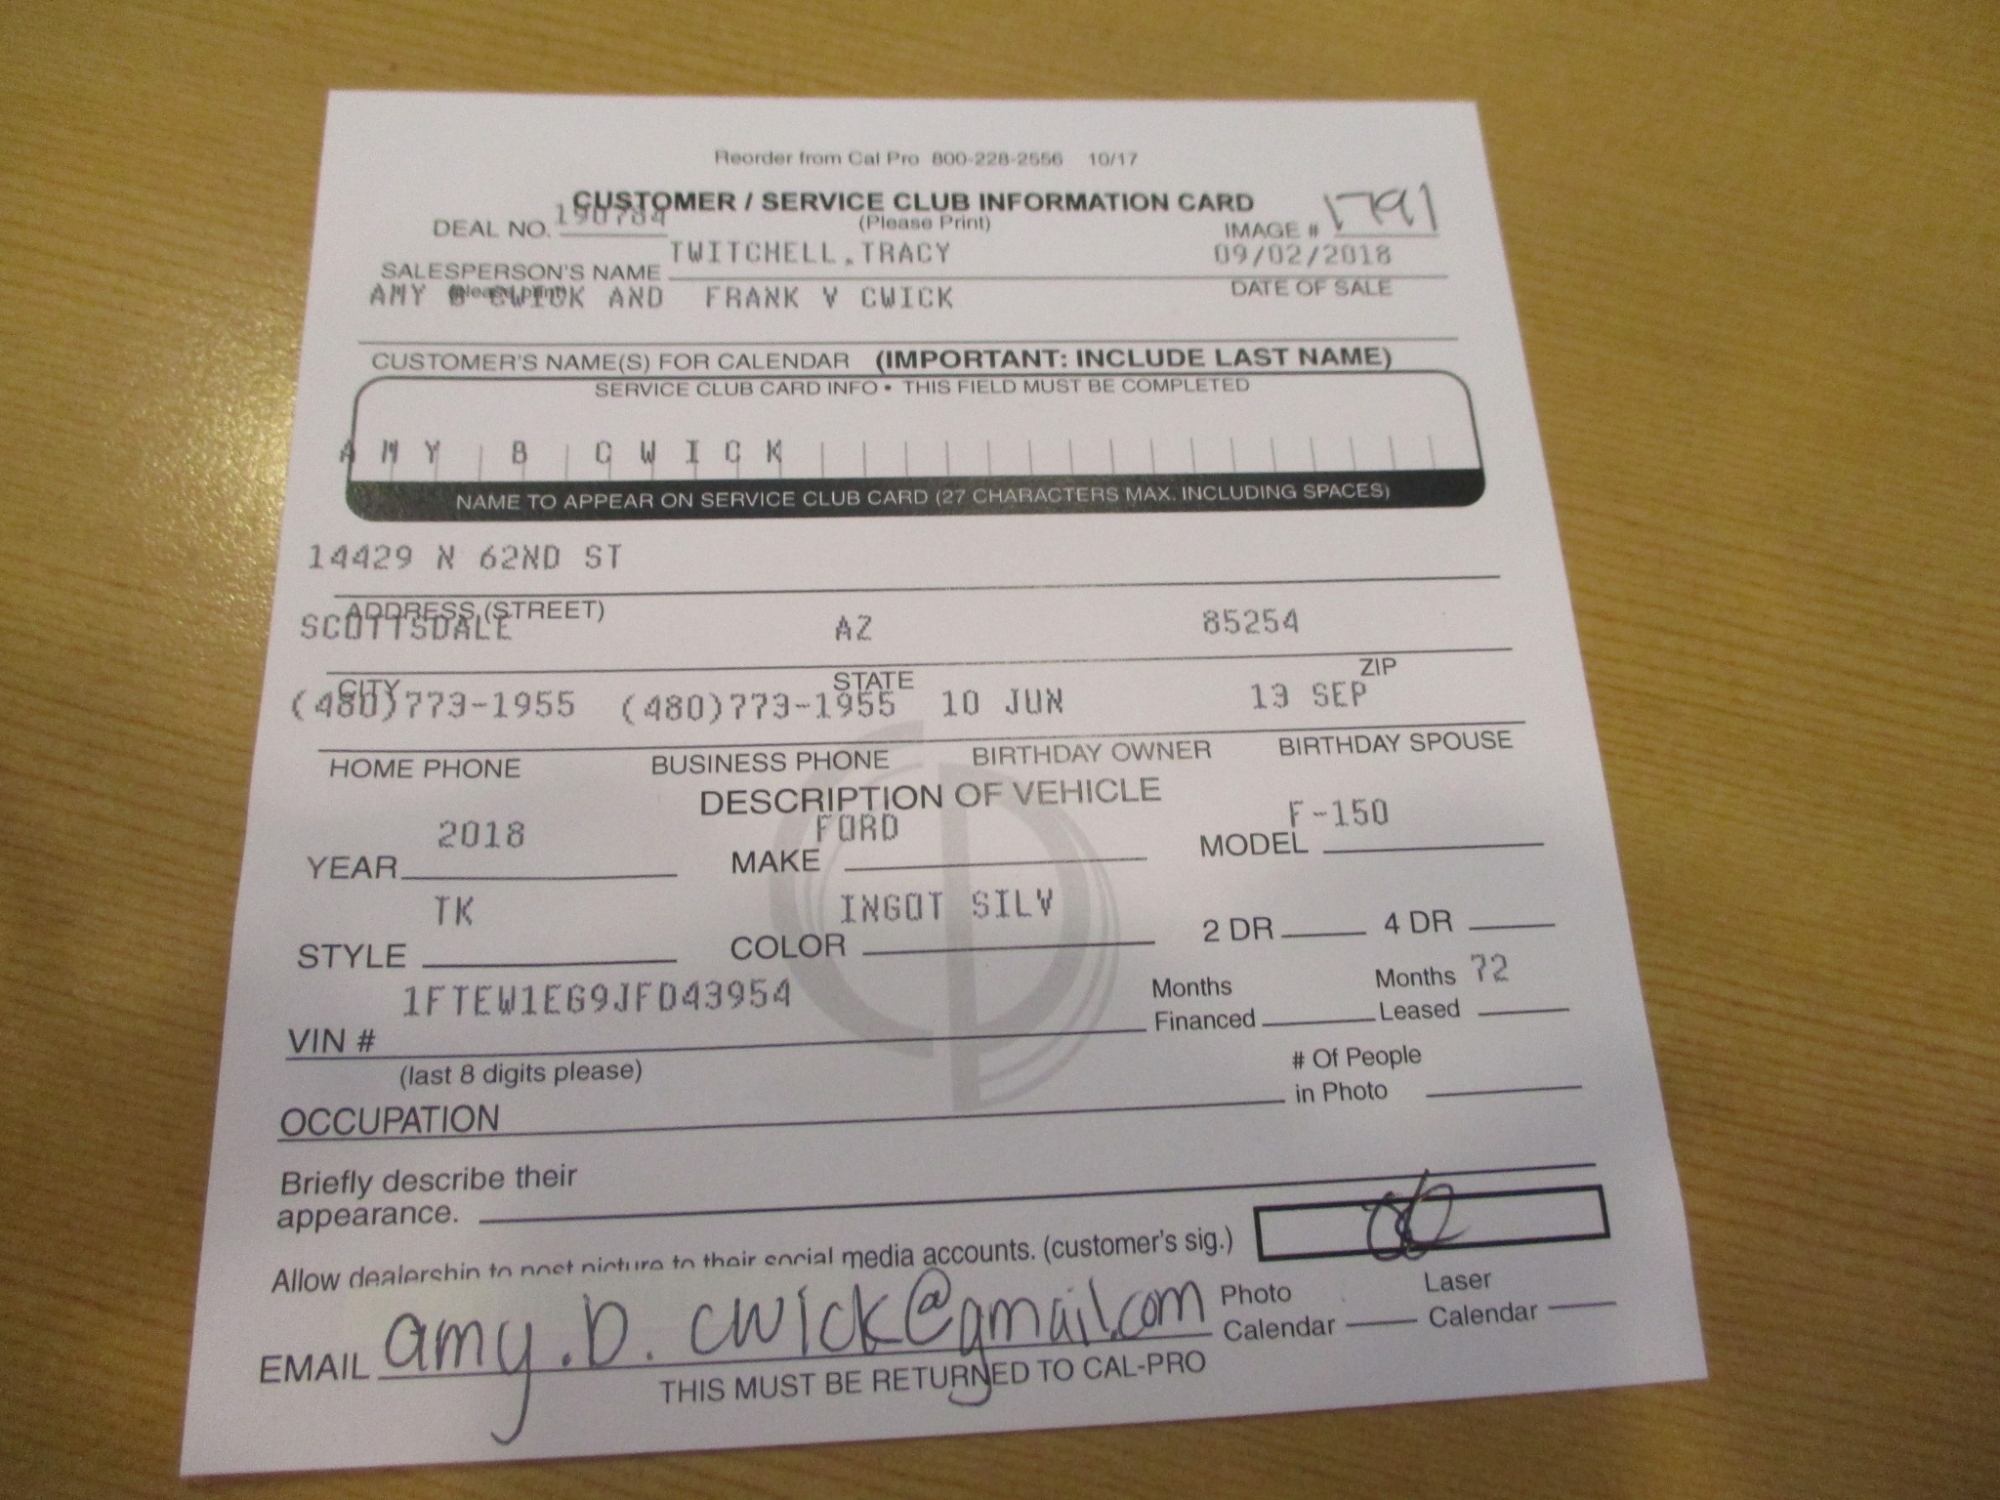 Reorder from Cal Pro 800-228-2556 10/17
CUSTOMER / SERVICE CLUB INFORMATION CARD
DEAL NO. 190784 (Please Print) IMAGE # 1791
TWITCHELL,TRACY 09/02/2018
SALESPERSON'S NAME DATE OF SALE
(please print)
AMY B CWICK AND FRANK V CWICK
CUSTOMER'S NAME(S) FOR CALENDAR (IMPORTANT: INCLUDE LAST NAME)
SERVICE CLUB CARD INFO • THIS FIELD MUST BE COMPLETED
AMY B CWICK
NAME TO APPEAR ON SERVICE CLUB CARD (27 CHARACTERS MAX. INCLUDING SPACES)
14429 N 62ND ST
ADDRESS (STREET)
SCOTTSDALE AZ 85254
CITY STATE ZIP
(480)773-1955 (480)773-1955 10 JUN 13 SEP
HOME PHONE BUSINESS PHONE BIRTHDAY OWNER BIRTHDAY SPOUSE
DESCRIPTION OF VEHICLE
2018 FORD F-150
YEAR MAKE MODEL
TK INGOT SILV
STYLE COLOR 2 DR 4 DR
1FTEW1EG9JFD43954 Months Months 72
VIN # Financed Leased
(last 8 digits please) # Of People
OCCUPATION in Photo
Briefly describe their
appearance.
Allow dealership to post picture to their social media accounts. (customer's sig.)
EMAIL amy.b.cwick@gmail.com Photo Calendar Laser Calendar
THIS MUST BE RETURNED TO CAL-PRO